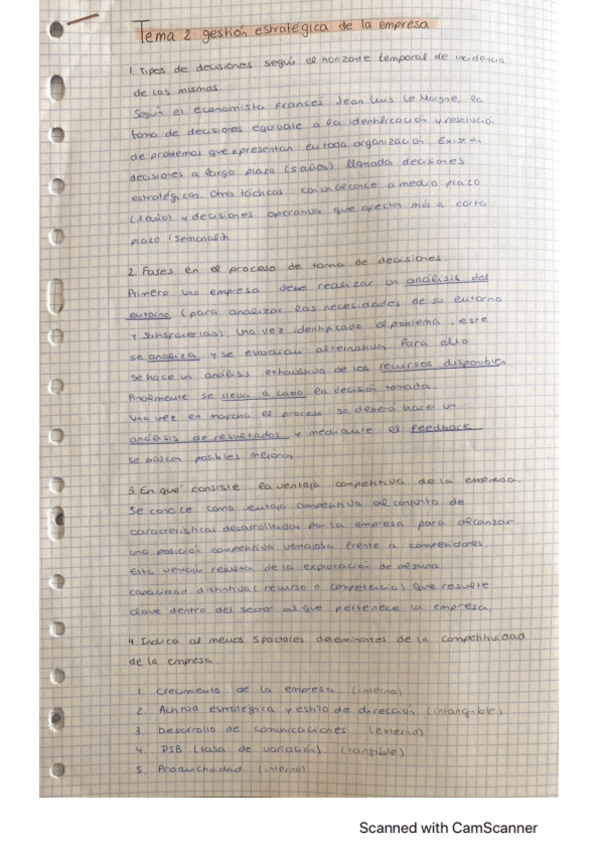 Tema 2: gestión estratégica de la empresa
1. Tipos de decisiones según el horizonte temporal de incidencia
de las mismas.
Según el economista Francés Jean Luis Le Moigne, la
toma de decisiones equivale a la identificación y resolución
de problemas que presentan en toda organización. Existen
decisiones a largo plazo (5 años) llamada decisiones
estratégicas. Otra tácticas a medio plazo
(1 año) y decisiones operativa que afectan más a corto
plazo
2. Fases en el proceso de toma de decisiones.
Primero una empresa debe realizar un análisis del
entorno (para analizar las necesidades de su entorno
y satisfacerlas). Una vez identificado el problema, este
se analiza y se evalúan alternativas. Para ello
se hace un análisis exhaustivo de los recursos disponibles
Finalmente se lleva a cabo la decisión tomada.
Una vez en marcha el proceso se deberá hacer un
análisis de resultados y mediante el feedback
se buscan posibles mejoras.
3. En qué consiste la ventaja competitiva de la empresa.
Se conoce como ventaja competitiva al conjunto de
características desarrolladas por la empresa para alcanzar
una posición competitiva ventajosa frente a competidores.
Esta ventaja resulta de la explotación de alguna
capacidad distintiva (recurso o competencia) que resulte
clave dentro del sector al que pertenece la empresa.
4. Indica al menos 5 factores determinantes de la competitividad
de la empresa.
1. Crecimiento de la empresa. (interno)
2. Actitud estratégica y estilo de dirección. (intangible)
3. Desarrollo de comunicaciones (externo)
4. PIB (tasa de variación). (tangible)
5. Productividad (interno)
Scanned with CamScanner